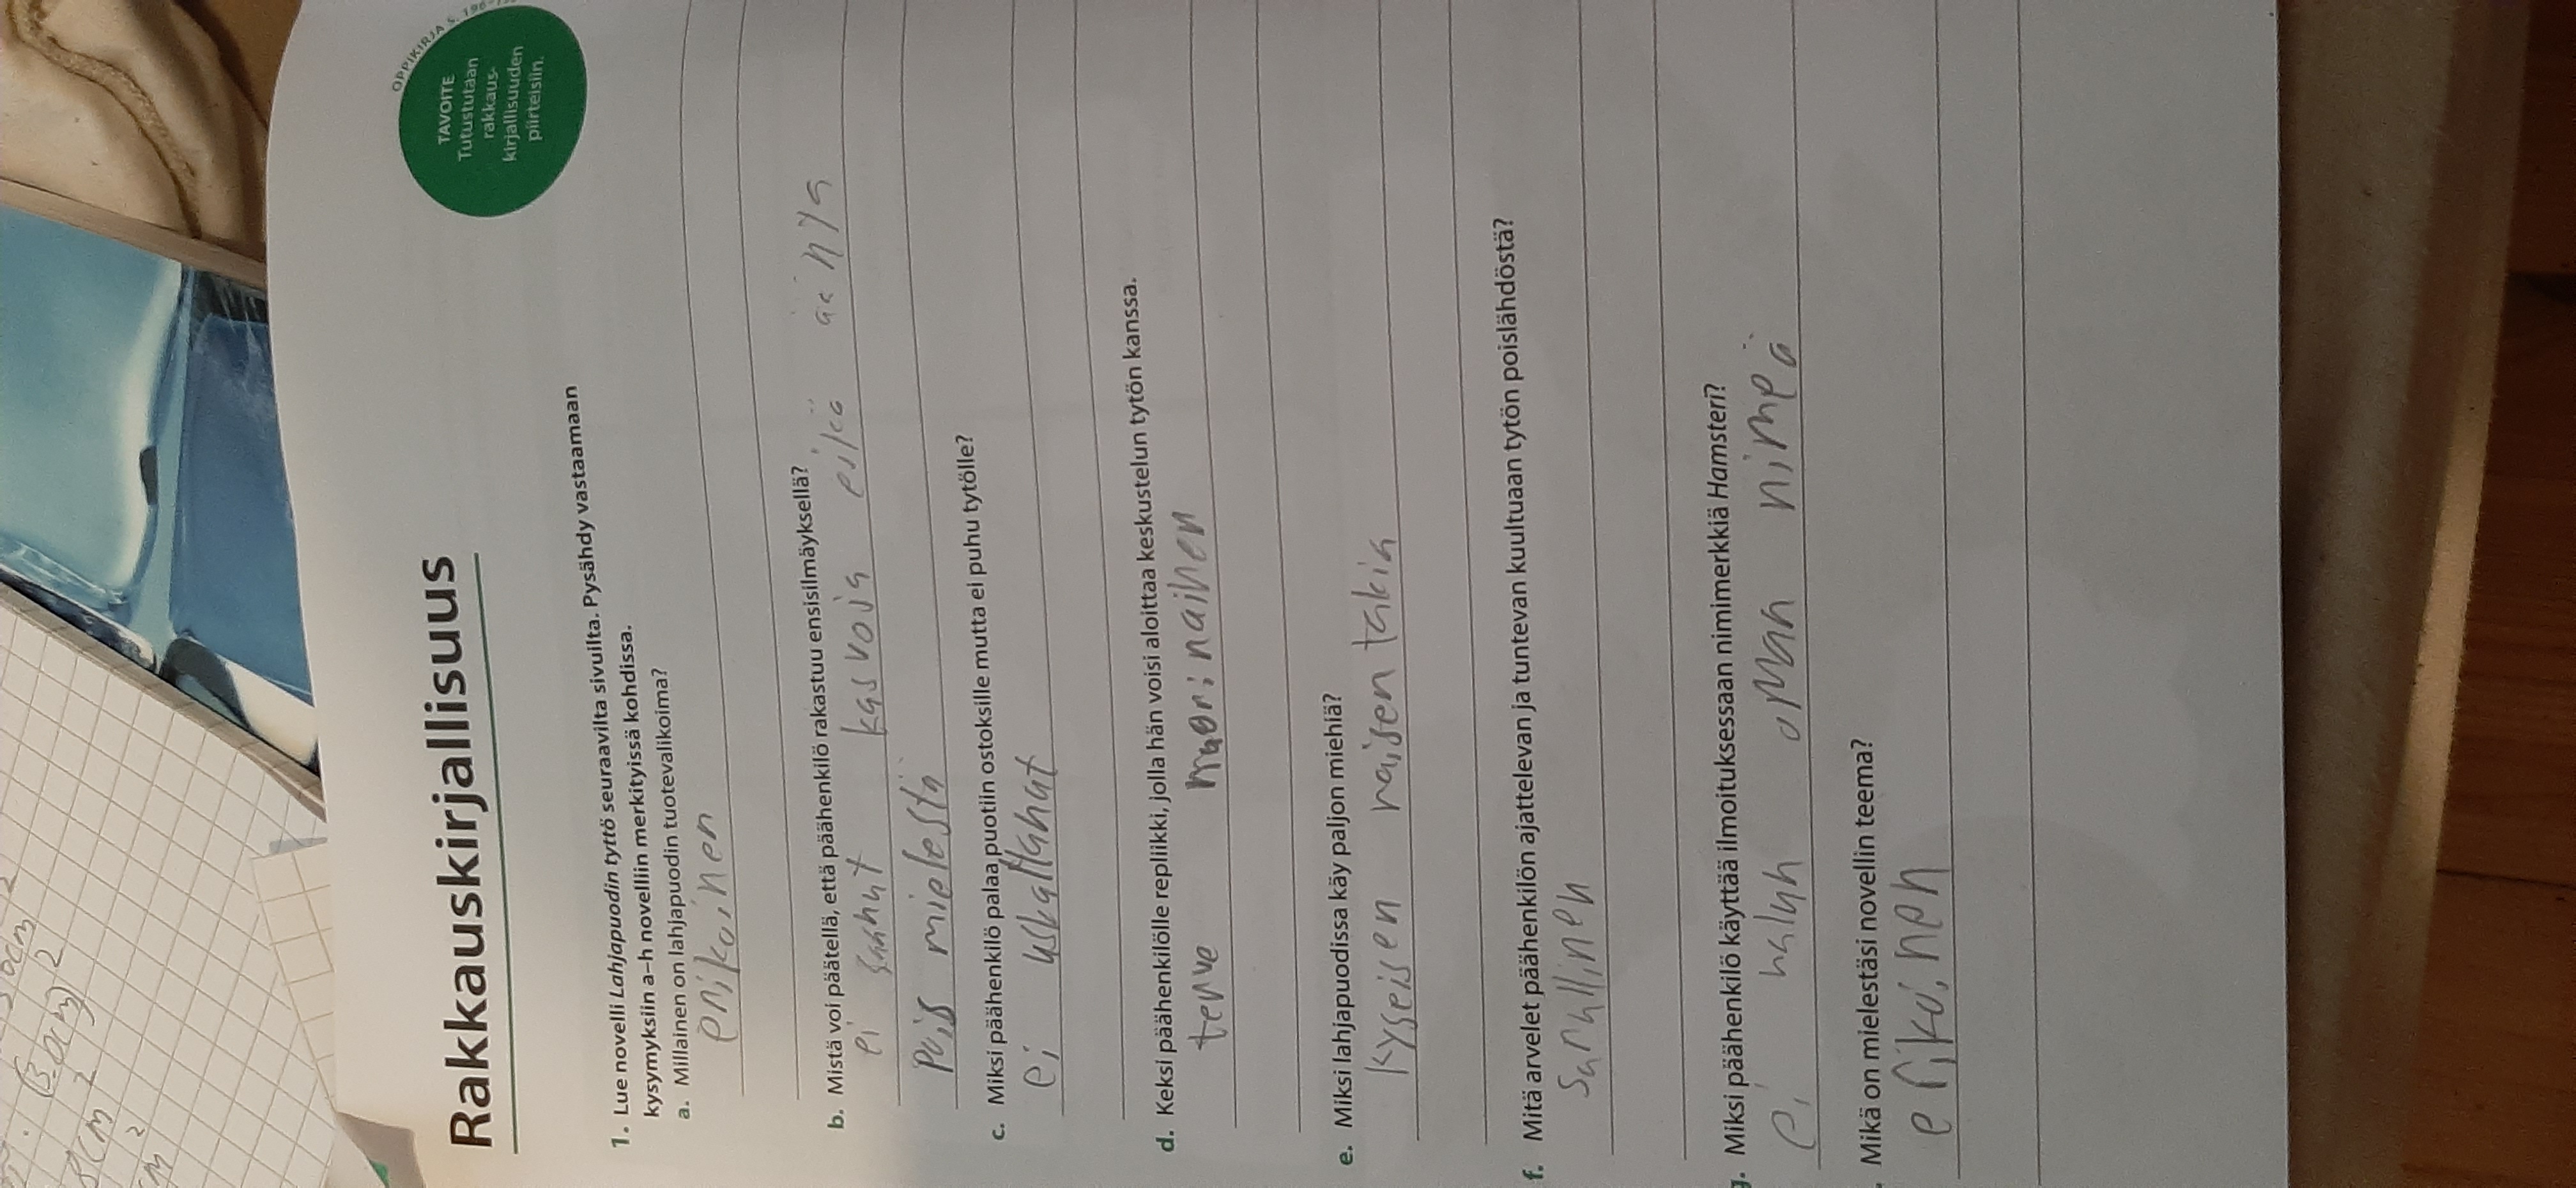 OPPIKIRJA S. 196–
TAVOITE
Tutustutaan
rakkaus-
kirjallisuuden
piirteisiin.
Rakkauskirjallisuus
1. Lue novelli Lahjapuodin tyttö seuraavilta sivuilta. Pysähdy vastaamaan
kysymyksiin a–h novelliin merkityissä kohdissa.
a. Millainen on lahjapuodin tuotevalikoima?
erikoinen
b. Mistä voi päätellä, että päähenkilö rakastuu ensisilmäyksellä?
ei saanut kasvoja eikä ääntä
pois mielestä
c. Miksi päähenkilö palaa puotiin ostoksille mutta ei puhu tytölle?
ei uskaltanut
d. Keksi päähenkilölle repliikki, jolla hän voisi aloittaa keskustelun tytön kanssa.
terve nuori nainen
e. Miksi lahjapuodissa käy paljon miehiä?
kyseisen naisen takia
f. Mitä arvelet päähenkilön ajattelevan ja tuntevan kuultuaan tytön poislähdöstä?
surullinen
g. Miksi päähenkilö käyttää ilmoituksessaan nimimerkkiä Hamsteri?
ei halun oman nimeä
Mikä on mielestäsi novellin teema?
erikoinen